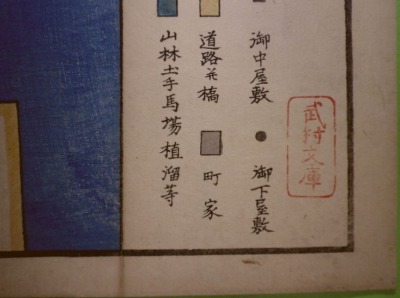 御中屋敷
御下屋敷
道路并橋
町家
山林土手馬場植溜等
武村文庫